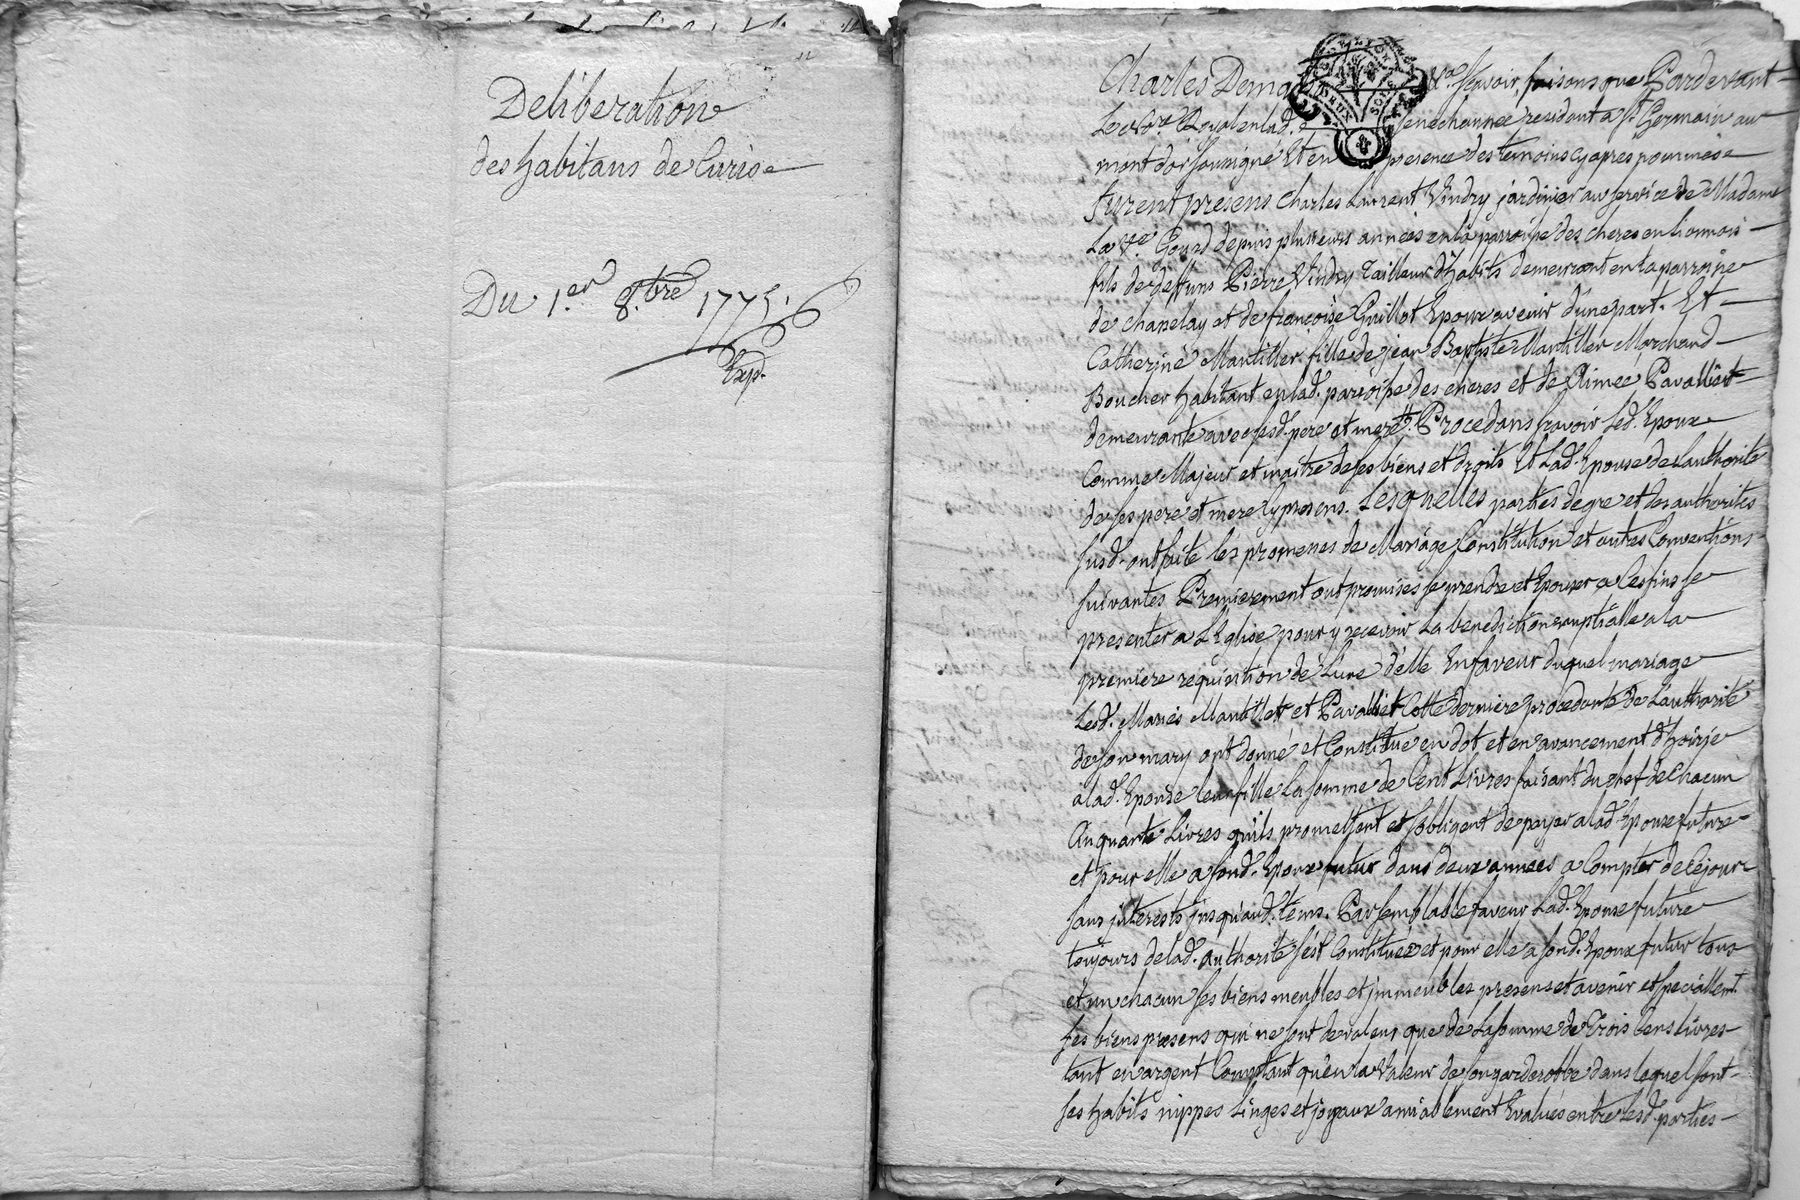 Deliberation
des habitans de Curis
Du 1.er 8.bre 1775.
Exp.
Charles Demas &.a sçavoir faisons que Pardevant
Le No.re Royal en lad. senechaussée residant a S.t Germain au
mont d'or soussigné Et en presence des temoins cy apres nommés
furent presens Charles Laurent Vindry jardinier au service de Madame
La V.ve Goyed depuis plusieurs années en la parroisse des cheres en lionnois
fils de deffuns Pierre Vindry Tailleur d'habits demeurant en la parroisse
de chapelay et de françoise Guillot Epoux avenir d'une part. Et
Catherine Mantillet fille de jean Baptiste Mantillet Marchand
Boucher habitant en lad. parroisse des cheres et de Aimeé Pavalliet
demeurante avec sesd. pere et mere Procedans sçavoir Led. Epoux
Comme Majeur et maitre de ses biens et droits Et Lad. Epouse de Lauthorité
de ses pere et mere Cy presens. Lesquelles parties de gre et des authorités
susd. ont faite les promesses de Mariage Constitution et autres Conventions
suivantes Premierement ont promises se prendre et Epouser a Ces fins se
presenter a L'Eglise pour y recevoir La benediction nuptialle a la
premiere requisition de L'une d'elle En faveur duquel mariage
Lesd. Mariés Mantillet et Pavalliet Cette derniere procedante de L'authorité
de son mary ont donné et Constitué en dot et en avancement d'hoirie
a lad. Epouse leur fille La somme de Cent Livres faisant du chef de Chacun
Cinquante Livres qu'ils promettent et s'obligent de payer a lad. Epouse future
et pour elle a sond. Epoux futur dans deux années a Compter de Cejour
sans jnterests jusqu'aud. tems. Par semblable faveur Lad. Epouse future
toujours de lad. authorité s'est Constituée et pour elle a sond. Epoux futur tous
et un chacun ses biens meubles et jmmeubles presens et avenir et speciallem.t
ses biens presens qui ne sont de valeur que de La somme de Trois Cens livres
tant en argent Comptant qu'en la Valeur de son garderobbe dans lequel sont
ses habits nippes Linges et joyaux amiablement Evalués entre Lesd. parties